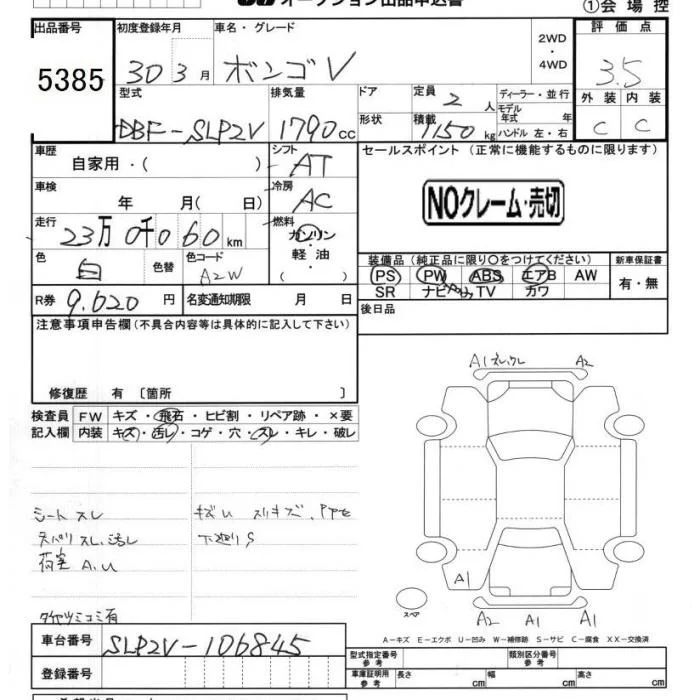 オークション出品申込書
①会場控
出品番号
5385
初度登録年月
30 3月
車名・グレード
ボンゴV
2WD
・
4WD
評価点
3.5
外装 内装
C C
型式
DBF-SLP2V
排気量
1790cc
ドア
形状
定員 2 人
積載 1150 kg
ディーラー・並行
モデル年式 年
ハンドル 左・右
車歴
自家用・( )
シフト
AT
車検
年 月( 日)
冷房
AC
走行
23万0千060km
燃料
ガソリン
・
軽油
( )
色
白
色替
色コード
A2W
R券 9.620 円
名変通知期限 月 日
セールスポイント(正常に機能するものに限ります)
NOクレーム・売切
装備品(純正品に限り○をつけてください)
PS PW ABS エアB AW
SR ナビ TV カワ
新車保証書
有・無
後日品
注意事項申告欄(不具合内容等は具体的に記入して下さい)
修復歴 有 〔箇所 〕
検査員
記入欄
FW キズ・飛石・ヒビ割・リペア跡・×要
内装 キズ・汚レ・コゲ・穴・スレ・キレ・破レ
シート スレ
天バリ スレ、汚レ
荷室 A.U
タイヤツミコミ有
キズU スリキズ、
下廻りS
A1 ズレ、ワレ A2
A1
A2 A1 A1
スペア
A-キズ E-エクボ U-凹み W-補修跡 S-サビ C-腐食 XX-交換済
車台番号 SLP2V-106845
登録番号
型式指定番号
参考
類別区分番号
参考
車庫証明用
参考
長さ cm
幅 cm
高さ cm